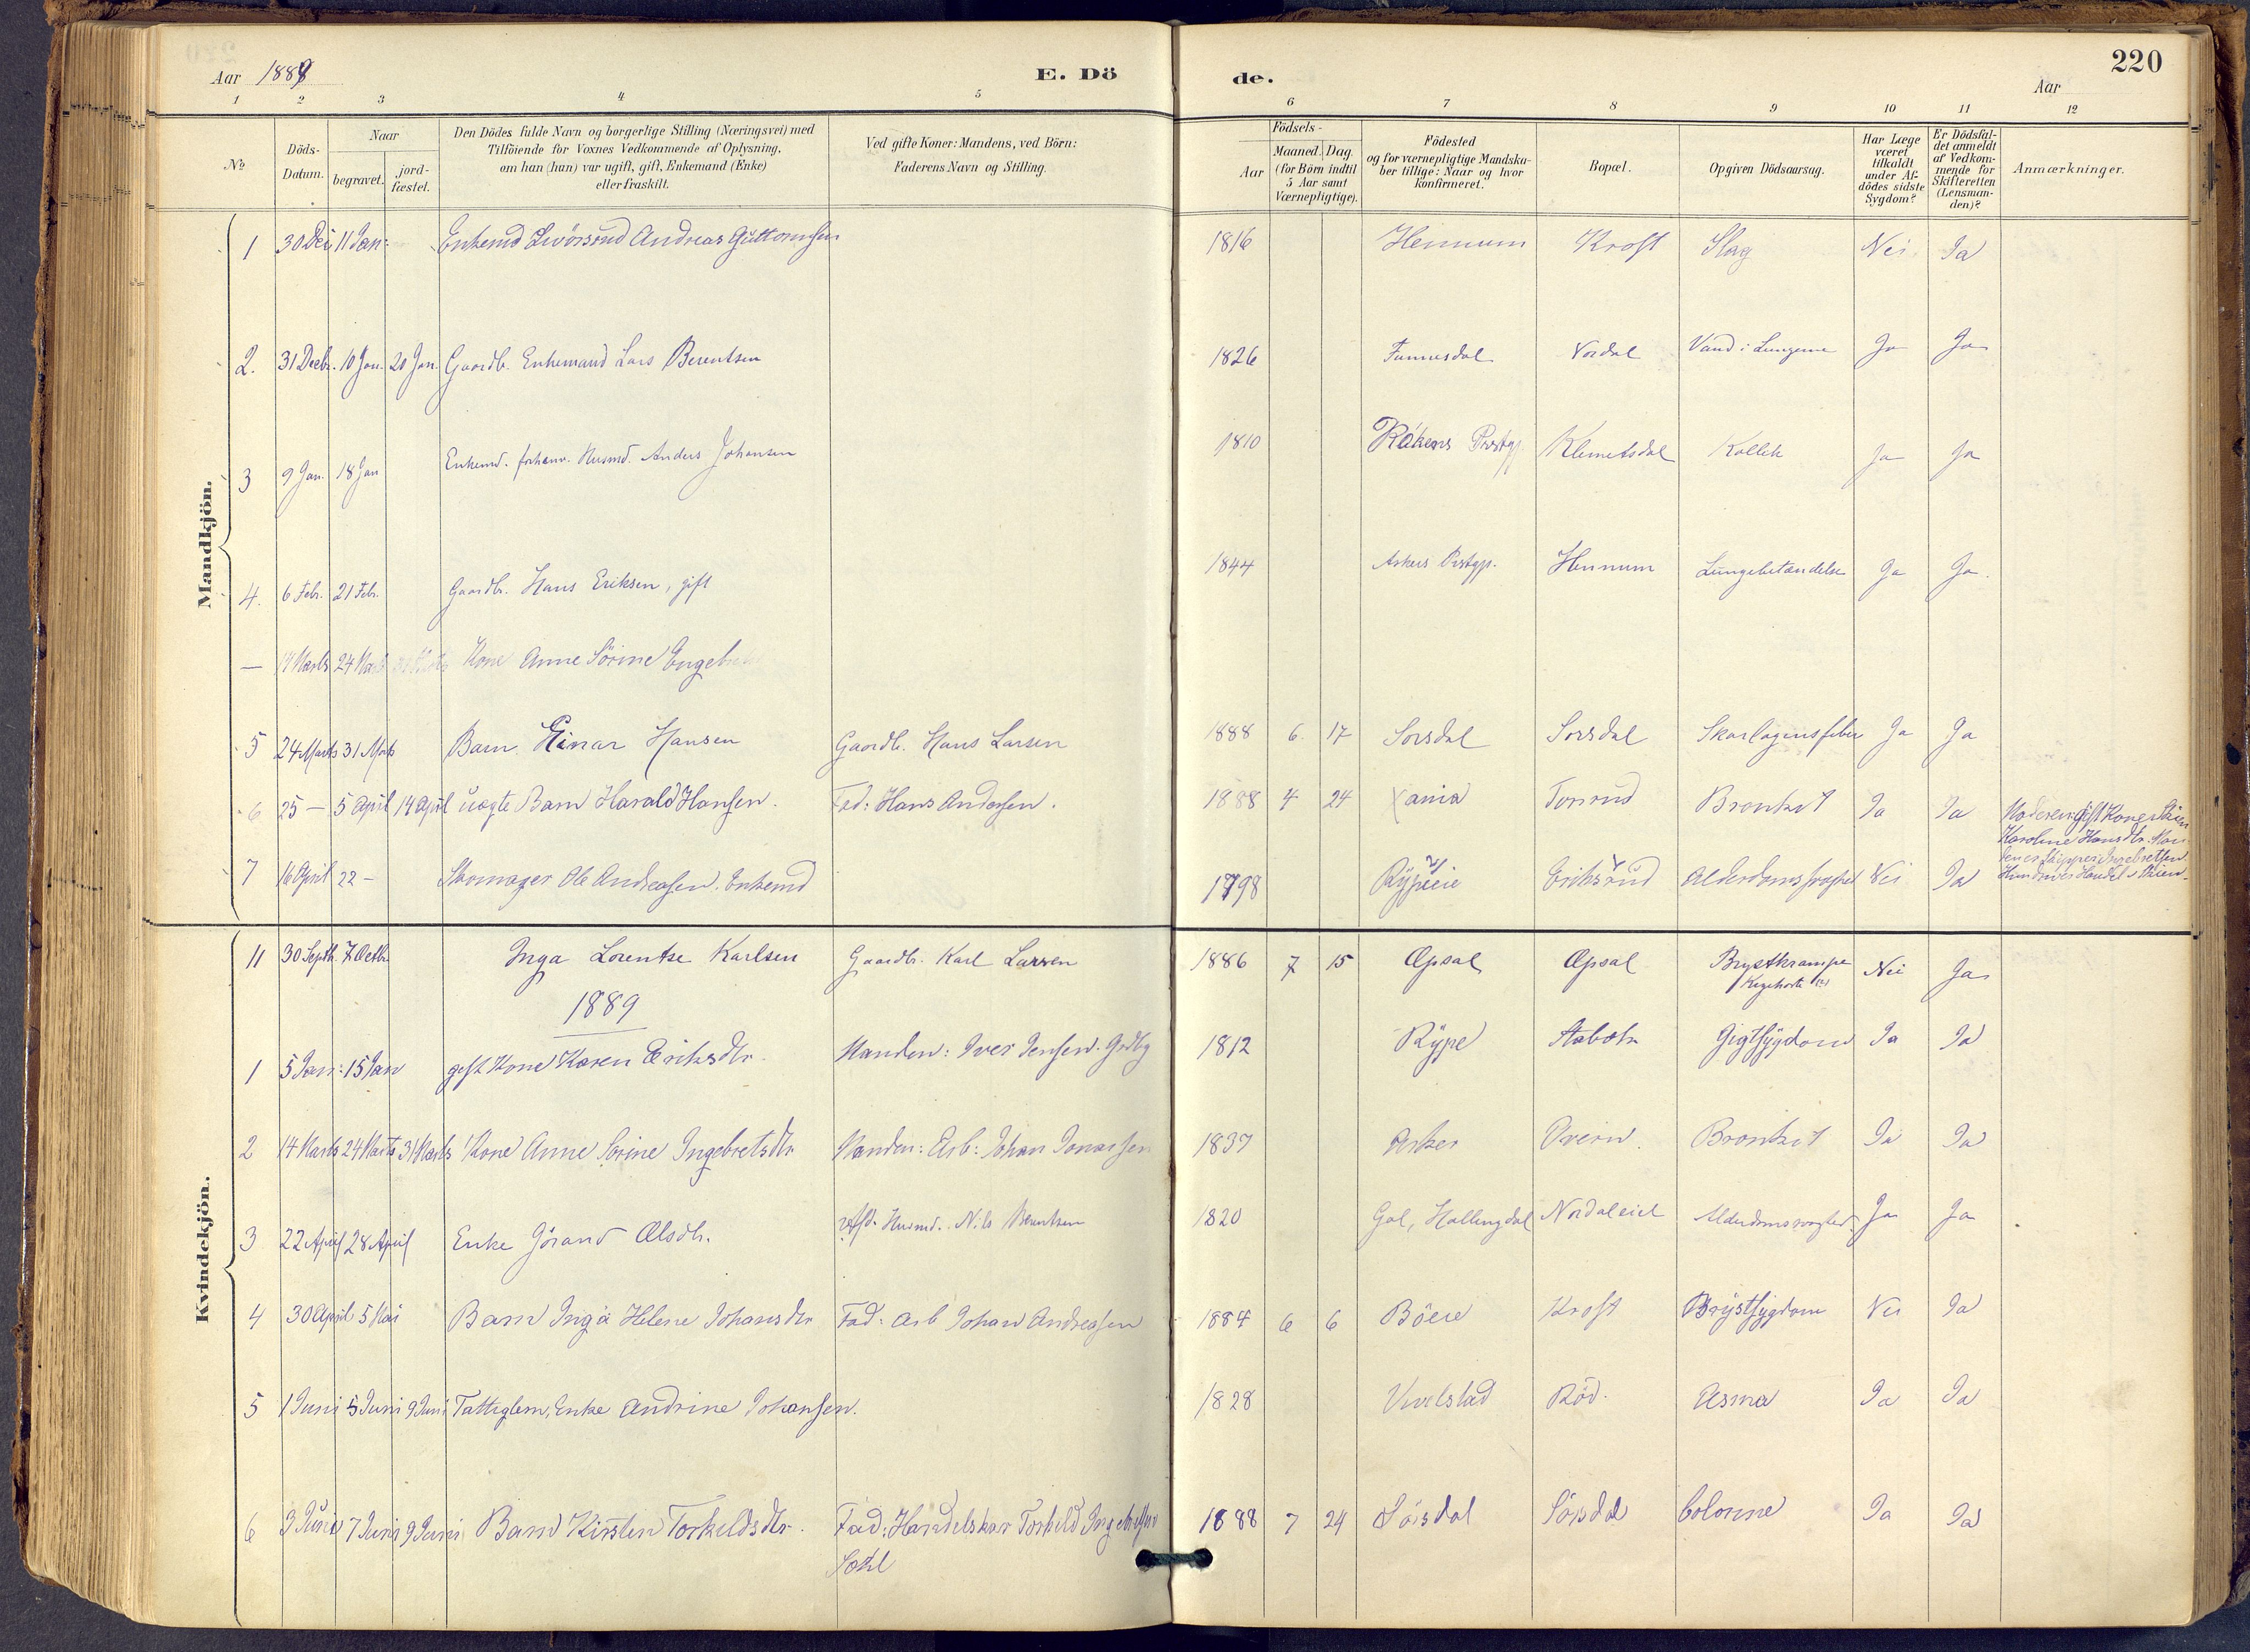 Aar 1889
E. Dö
de.
220
Aar
1 2 3 4 5 6 7 8 9 10 11 12
No
Döds-Datum.
Naar
begravet.
jord-fæstet.
Den Dödes fulde Navn og borgerlige Stilling (Næringsvei) med
Tilföiende for Voxnes Vedkommende af Oplysning,
om han (hun) var ugift, gift, Enkemand (Enke)
eller fraskilt.
Ved gifte Koner: Mandens, ved Börn:
Faderens Navn og Stilling.
Födsels-
Aar
Maaned. Dag
(for Börn indtil
5 Aar samt
Værnepligtige).
Födested
og for værnepligtige Mandska-
ber tillige: Naar og hvor
konfirmeret.
Bopæl.
Opgiven Dödsaarsag.
Har Læge
været
tilkaldt
under Af-
dödes sidste
Sygdom?
Er Dödsfal-
det anmeldt
af Vedkom-
mende for
Skifteretten
(Lensman-
den)?
Anmærkninger.
Mandkjön.
1 30 Dec 11 Jan: Enkemd Andreas Guttormsen 1816 Hennum Kroft Slag Nei Ja
2. 31 Decbr. 10 Jan. 20 Jan. Gaardb. Enkemand Lars Berentsen 1826 Nordal Vand i Lungerne Ja Ja
3 9 Jan. 18 Jan Enkemd. Husmd. Anders Johansen 1810 Rökens Prstgj. Klemetsdal Ja Ja
4. 6 Febr. 21 Febr. Gaardbr. Hans Eriksen, gift 1844 Askers Prstgj. Hennum Lungebetændelse Ja Ja.
— 14 Marts 24 Marts Kone Anne Sörine
5 24 Marts 31 Marts Barn Einar Hansen Gaardb. Hans Larsen 1888 6. 17 Sorsdal Sorsdal Skarlagensfeber Ja Ja
6 25 — 5 April 14 April uægte Barn Harald Hansen. Fad: Hans Andersen. 1888 4 24 Xania Tonrud Bronkit Ja Ja Moderen: gift Kone
Karoline Hansdtr. Man
7 16 April 22 — Skomager Ole Andreasen. Enkemd 1798 Rypeeie Eriksrud Alderdomssvaghed Nei Ja
Kvindekjön.
11 30 Septb. 7 Octbr. Inga Lorentse Karlsen Gaardbr. Karl Larsen 1886 7 15 Opsal Opsal Brystkrampe
Kighoste (?) Nei Ja
1889
1 5 Jan: 15 Jan gift Kone Karen Eriksdtr. Manden: Iver Jensen. Grdbg 1812 Rype Gigtsygdom Ja Ja
2 14 Marts 24 Marts 31 Marts Kone Anne Sörine Ingebretsdtr Manden: Arb: Johan Jonassen 1837 Asker Overn Bronkit Ja Ja
3 22 April 28 April Enke Görand Olsdtr. Husmd. Nils Berentsen 1820 Gol, Hallingdal Nordaleiet Alderdomssvaghed Ja Ja
4 30 April 5 Mai Barn Inga Helene Johansdtr Fad: Arb Johan Andreasen 1884 6 6 Böeie Kroft Brystsygdom Nei Ja
5 1 Juni 5 Juni 9 Juni Fattiglem, Enke Andrine Johansen. 1828 Röd. Asma Ja Ja
6 3 Juni 7 Juni 9 Juni Barn Kirsten Torkeldsdtr. Fad: Handelskar Torkeld Ingebretsen 1888 7 24 Sörsdal Sörsdal Colorine Ja Ja